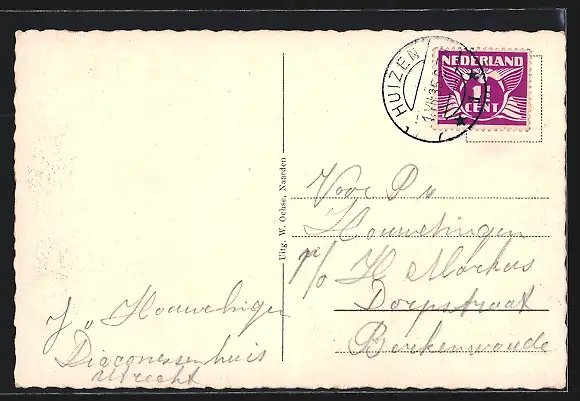 HUIZEN
NEDERLAND
1½
CENT
Uitg. W. Ochse, Naarden
Voor P v
Houwelingen
p/o H Markus
Dorpstraat
Berkenwoude
J v Houwelingen
Diaconessenhuis
Utrecht